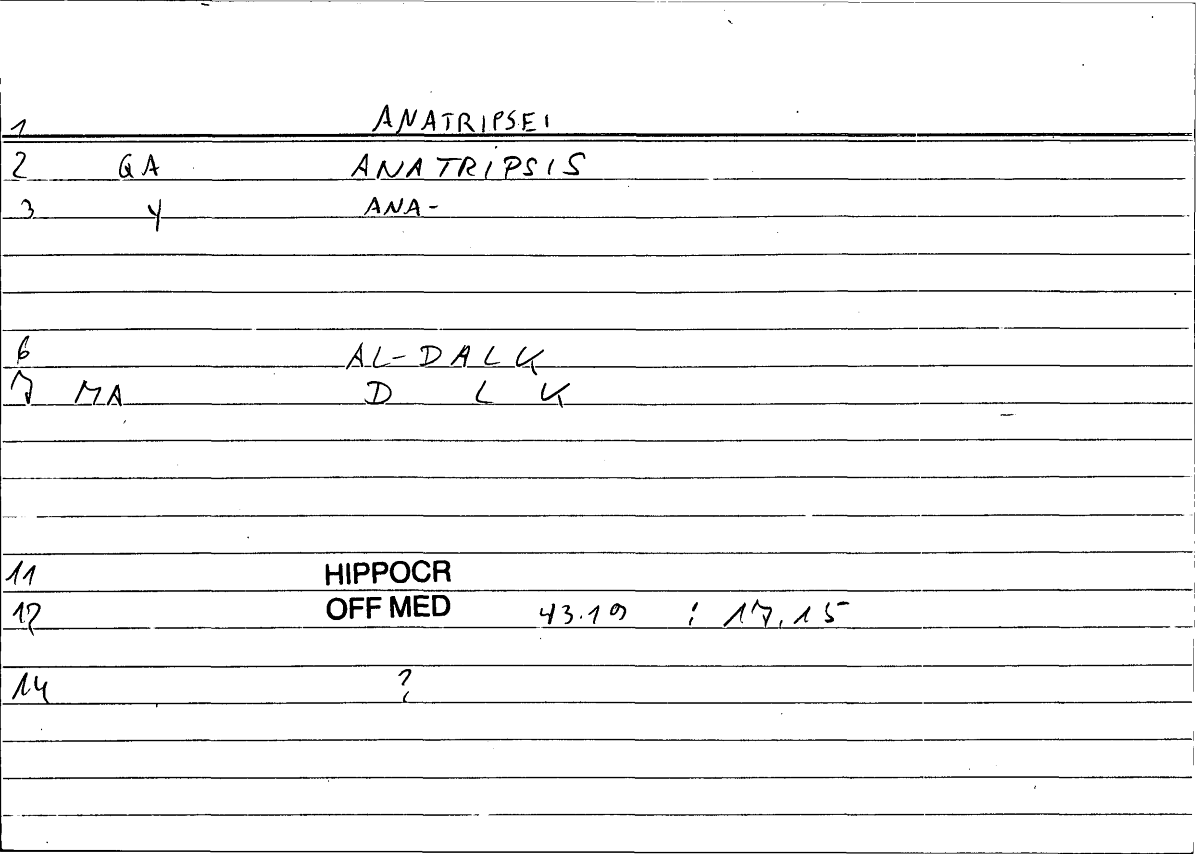 1 ANATRIPSEI
2 GA ANATRIPSIS
3 Y ANA-
6 AL-DALK
7 MA D L K
11 HIPPOCR
12 OFF MED 43.19 : 17.15
14 ?